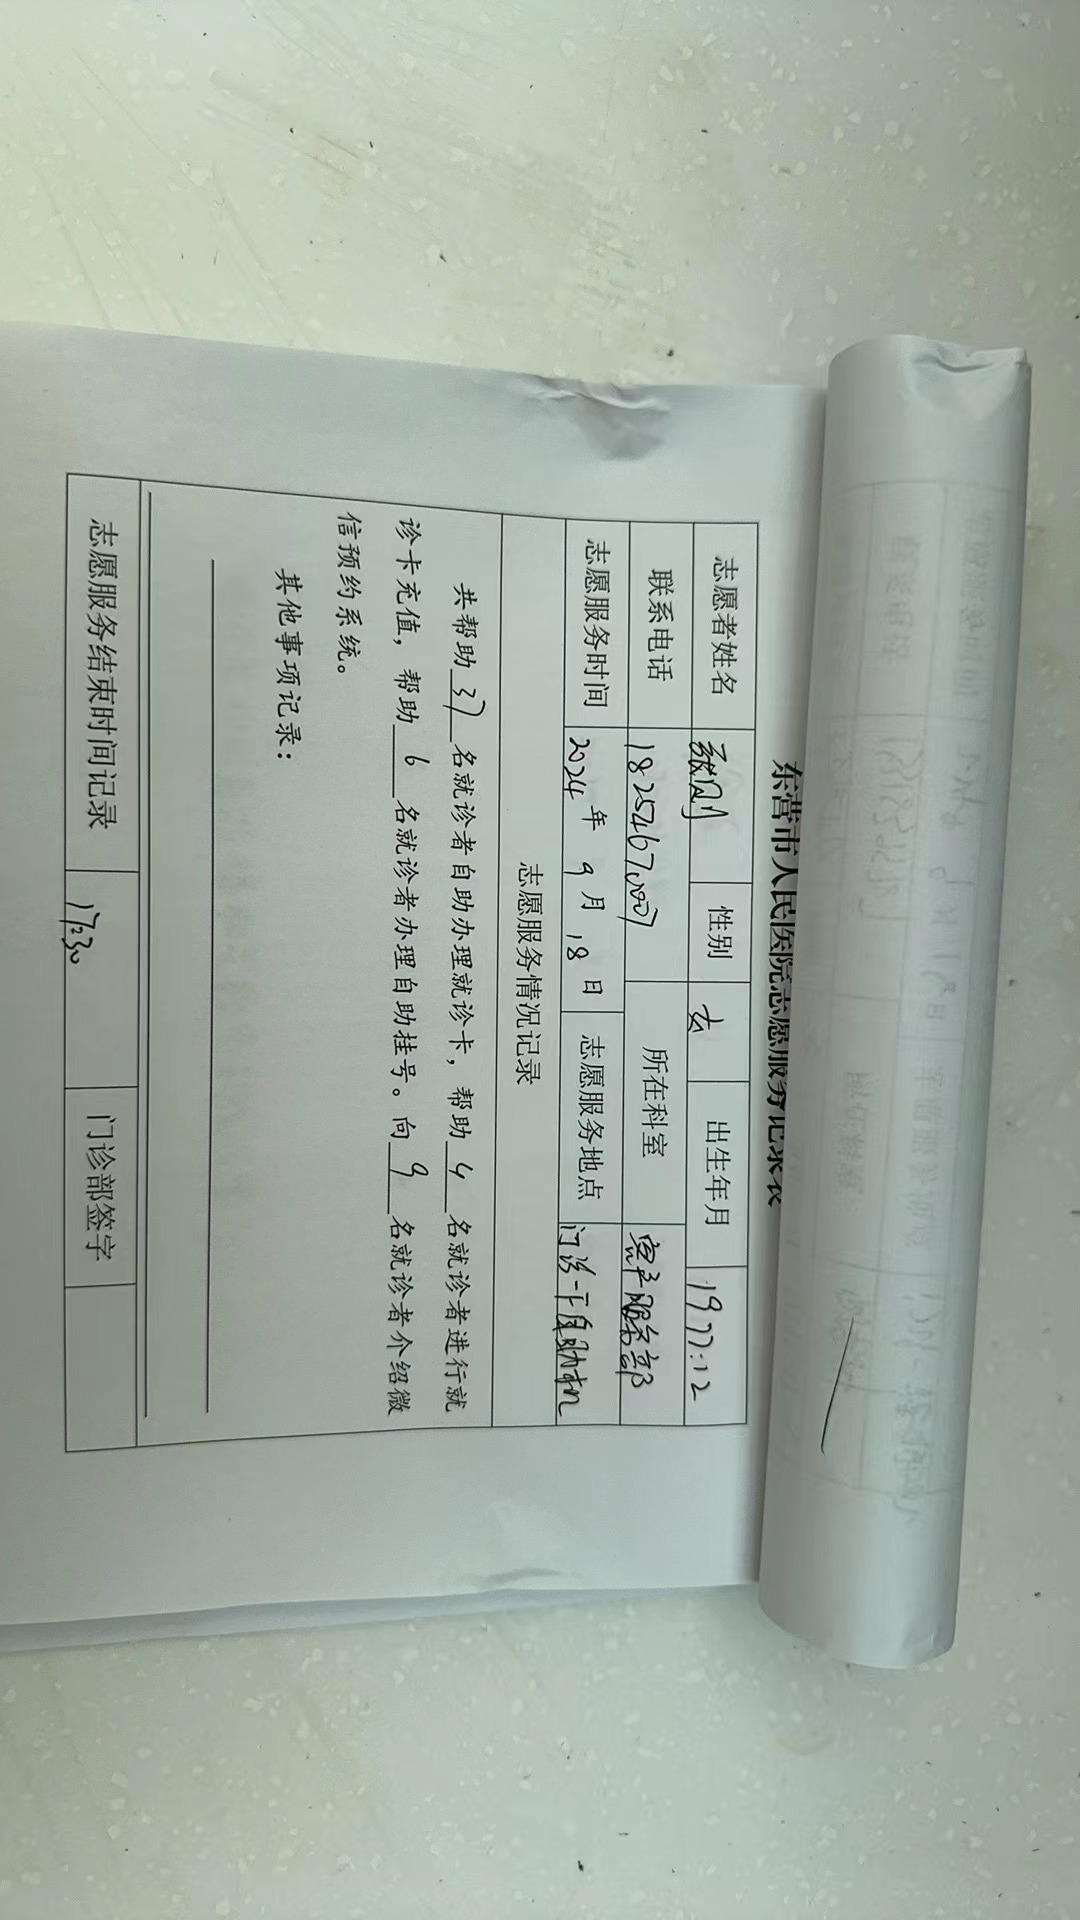 东营市人民医院志愿服务记录表
志愿者姓名 性别 出生年月 1977.12
联系电话 所在科室 客户服务部
志愿服务时间 2024年9月18日 志愿服务地点 门诊一千自助机
志愿服务情况记录
共帮助37名就诊者自助办理就诊卡，帮助4名就诊者进行就
诊卡充值，帮助6名就诊者办理自助挂号。向9名就诊者介绍微
信预约系统。
其他事项记录：
志愿服务结束时间记录 17:30 门诊部签字